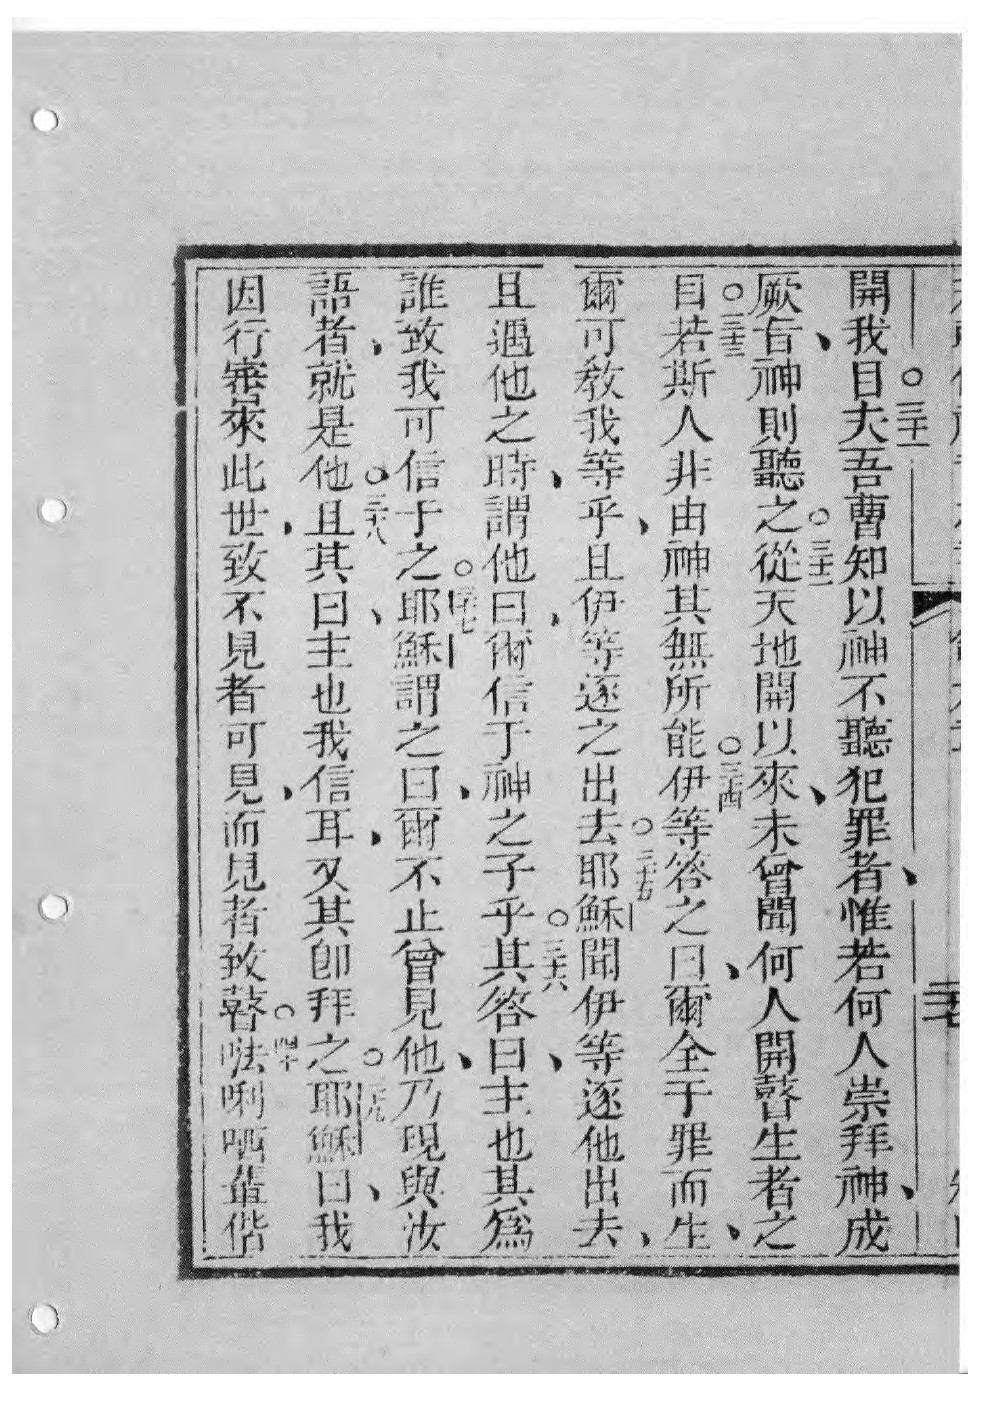 開我目夫○三十一吾曹知以神不聽犯罪者惟若何人崇拜神成
厥旨神則聽之○三十二從天地開以來未曾聞何人開瞽生者之
目○三十三若斯人非由神其無所能○三十四伊等答之曰爾全于罪而生
爾可教我等乎且伊等逐之出去○三十五耶穌聞伊等逐他出去
且遇他之時謂他曰爾信于神之子乎○三十六其答曰主也其為
誰致我可信于之○三十七耶穌謂之曰爾不止曾見他乃現與汝
語者就是他○三十八且其曰主也我信耳又其卽拜之○三十九耶穌曰我
因行審來此世致不見者可見而見者致瞽○四十㕸唎哂輩偕